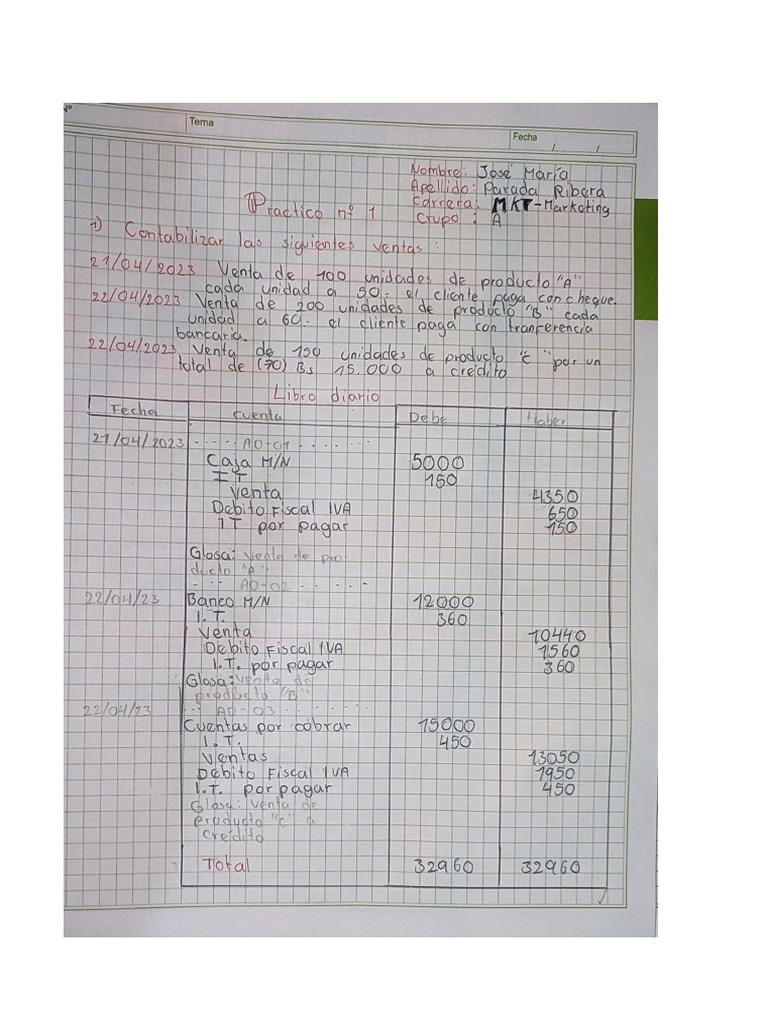 Nº
Tema
Fecha / /
Nombre: José María
Apellido: Parada Ribera
Carrera: MKT-Marketing
Grupo: A
Practico nº 1
1) Contabilizar las siguientes ventas:
21/04/2023 Venta de 100 unidades de producto "A"
cada unidad a 50. el cliente paga con cheque.
22/04/2023 Venta de 200 unidades de producto "B" cada
unidad a 60. el cliente paga con tranferencia
bancaria.
22/04/2023 Venta de 150 unidades de producto "C" por un
total de Bs 15.000 a crédito
Libro diario
Fecha Cuenta Debe Haber
21/04/2023 ----- AD-01 .......
Caja M/N 5000
I T 150
Venta 4350
Debito Fiscal IVA 650
IT por pagar 150
Glosa: Venta de pro-
ducto "A"
---- AD-02 ......
22/04/23 Banco M/N 12000
I.T. 360
Venta 10440
Debito Fiscal IVA 1560
I.T. por pagar 360
Glosa: Venta de
producto "B"
22/04/23 --- AD-03 .......
Cuentas por cobrar 15000
I.T. 450
Ventas 13050
Debito Fiscal IVA 1950
I.T. por pagar 450
Glosa: Venta de
producto "C" a
Creídito
Total 32960 32960